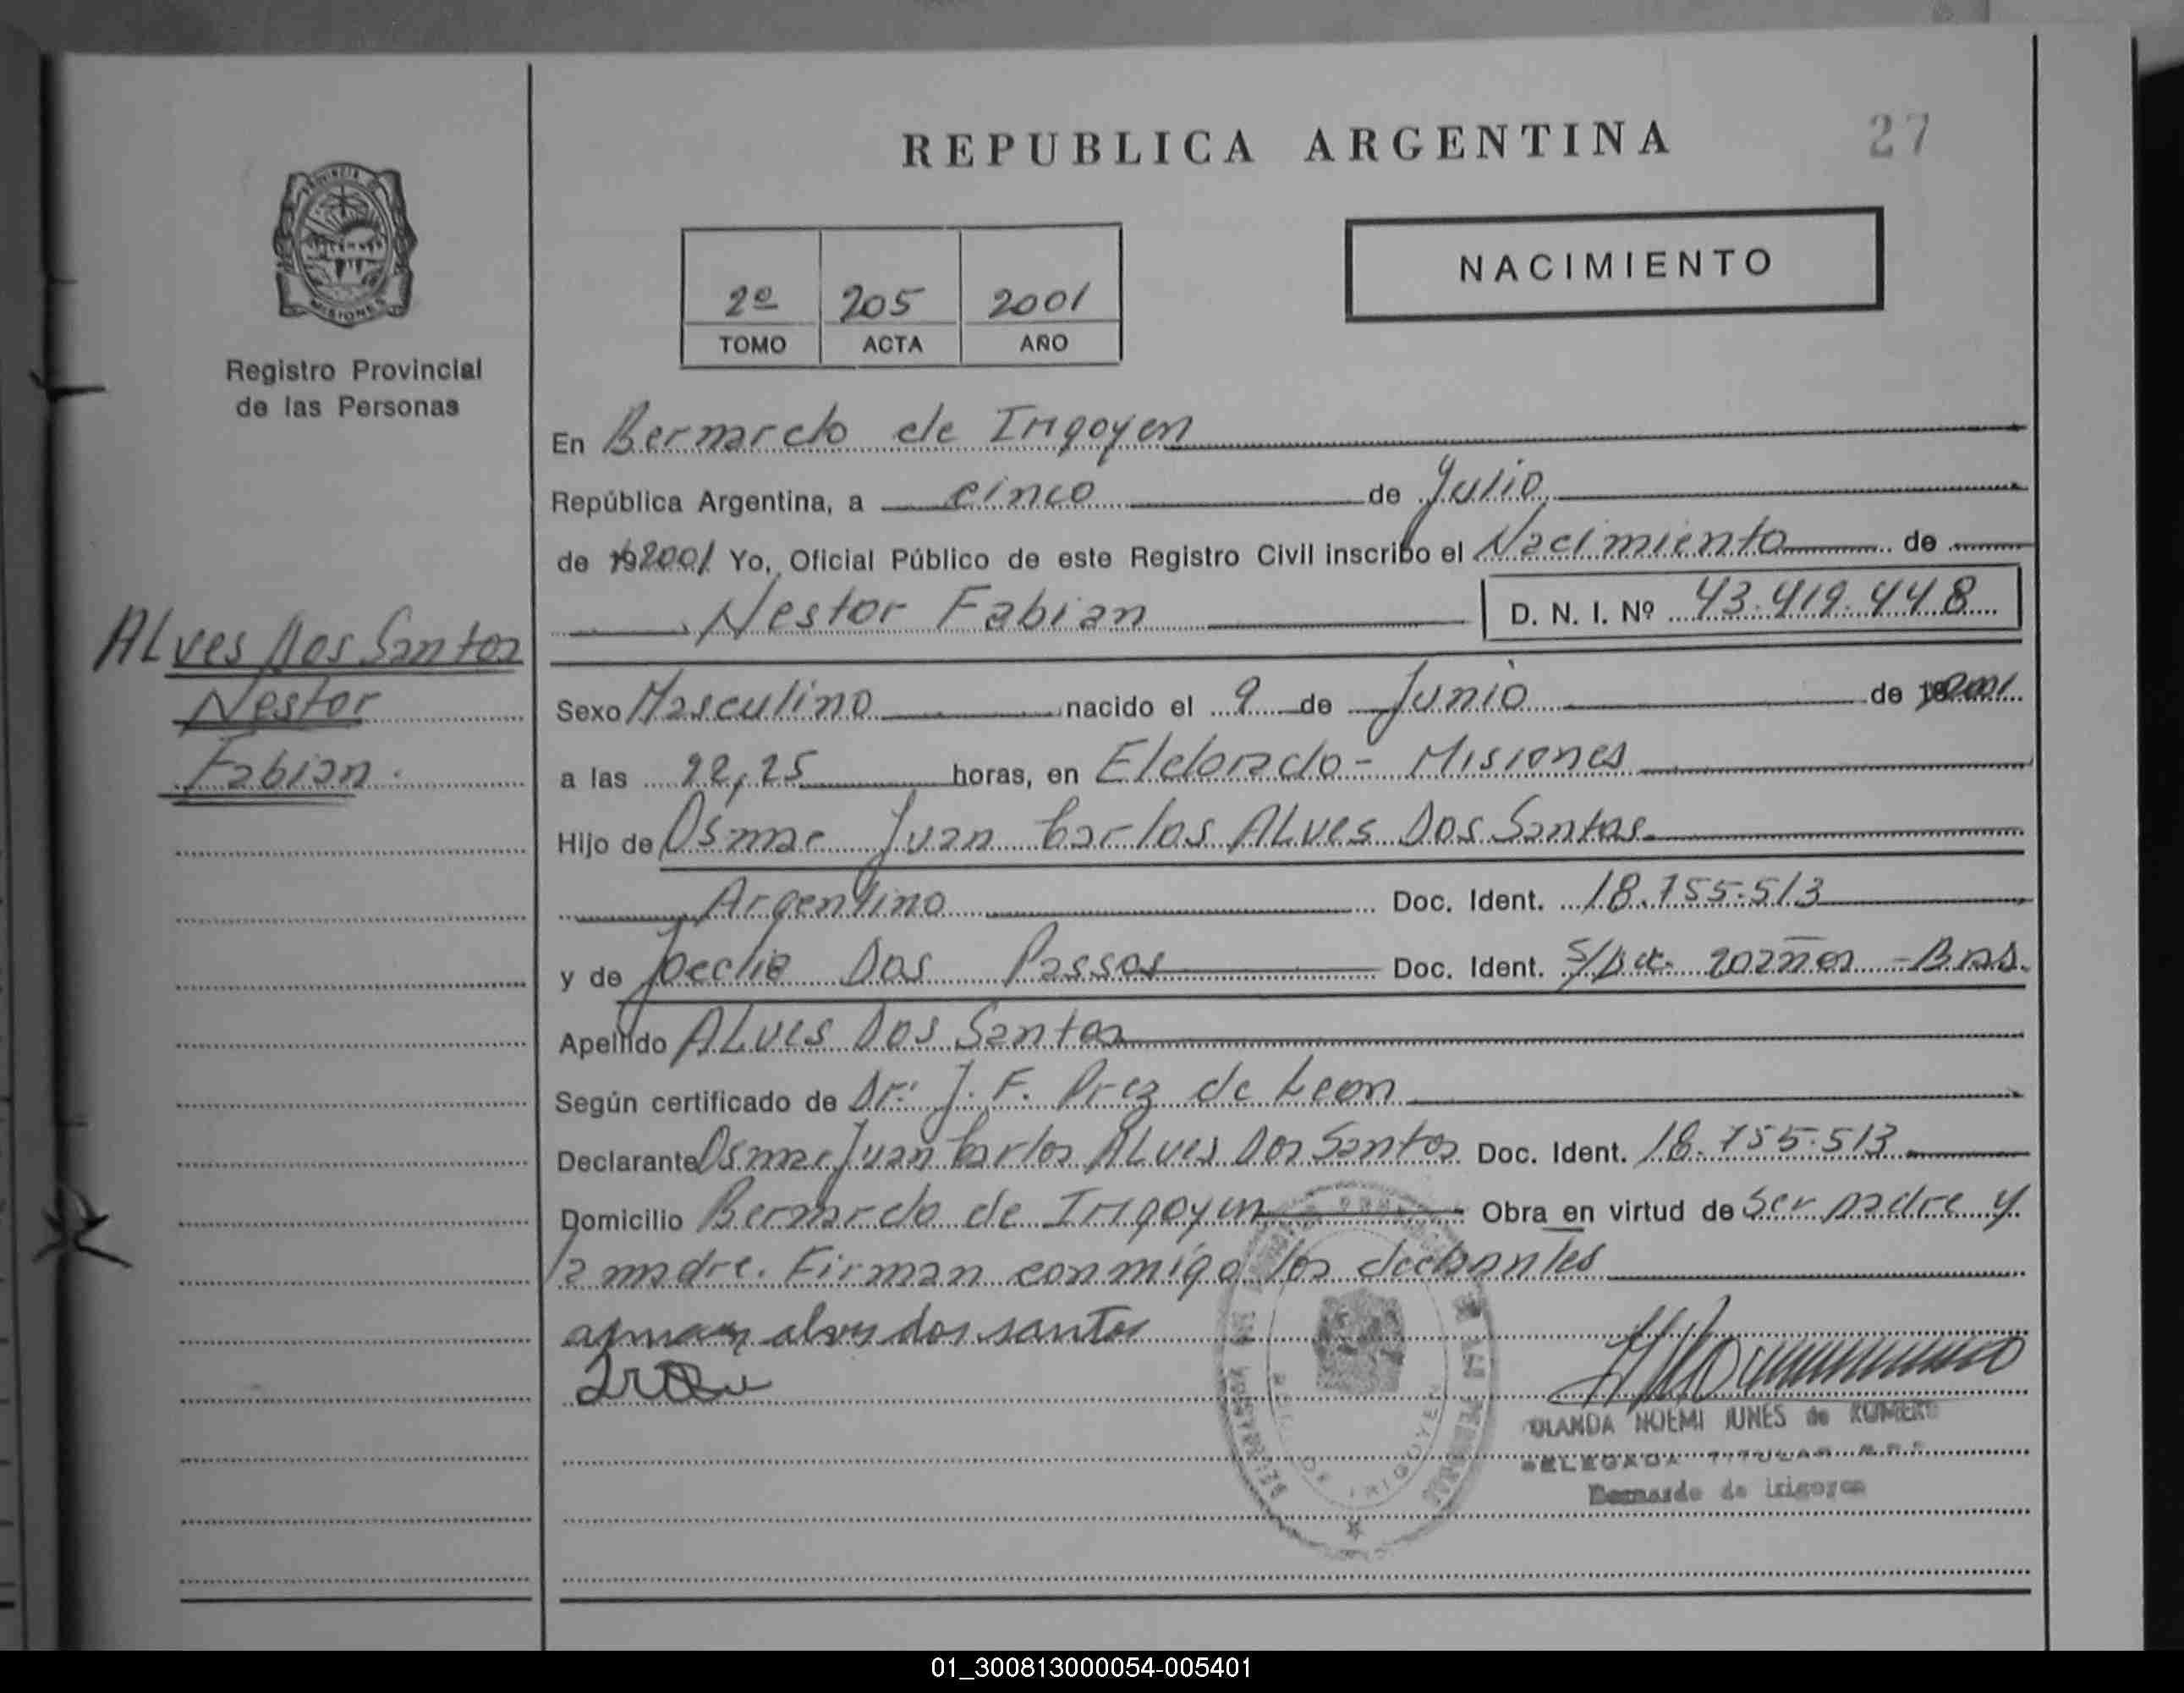 REPUBLICA ARGENTINA
27
PROVINCIA DE MISIONES
Registro Provincial
de las Personas
2º 205 2001
TOMO ACTA AÑO
NACIMIENTO
En Bernardo de Irigoyen
República Argentina, a cinco de Julio
de 192001 Yo, Oficial Público de este Registro Civil inscribo el Nacimiento de
Nestor Fabian D. N. I. Nº 43.419.448
ALves Dos Santos
Nestor
Fabian.
Sexo Masculino nacido el 9 de Junio de 192001
a las 22,25 horas, en Eldorado - Misiones
Hijo de Osmar Juan Carlos ALves Dos Santos
Argentino Doc. Ident. 18.755.513
y de Dos Passos Doc. Ident. S/Doc. 20 años - Bras.
Apellido ALves Dos Santos
Según certificado de Dr: J. F. Prez de Leon
Declarante Osmar Juan Carlos ALves Dos Santos Doc. Ident. 18.755.513
Domicilio Bernardo de Irigoyen Obra en virtud de Ser padre y
la madre. Firman conmigo los
alves dos santos
NOEMI JUNES de
DELEGADA TITULAR
Bernardo de Irigoyen
DE IRIGOYEN
01_300813000054-005401